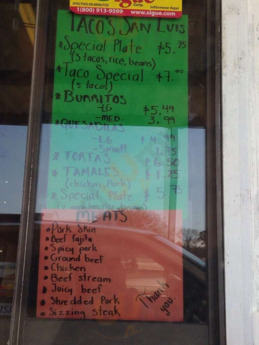 1(800) 913-9599 www.sigue.com
TACOS SAN LUIS
Special Plate $5.75
(3 tacos, rice, beans)
Taco Special $7.00
(5 tacos)
BURRITOS
-LG $5.49
-MED. 3.99
QUESADILLAS
-LG
-Small 1.75
TORTAS
TAMALES
(chicken, Pork)
Special Plate $5.75
MEATS
Pork Skin
Beef fajita
Spicy pork
Ground beef
Chicken
Beef stream
Juicy beef
Shredded Pork
Sizzing steak
Thank you